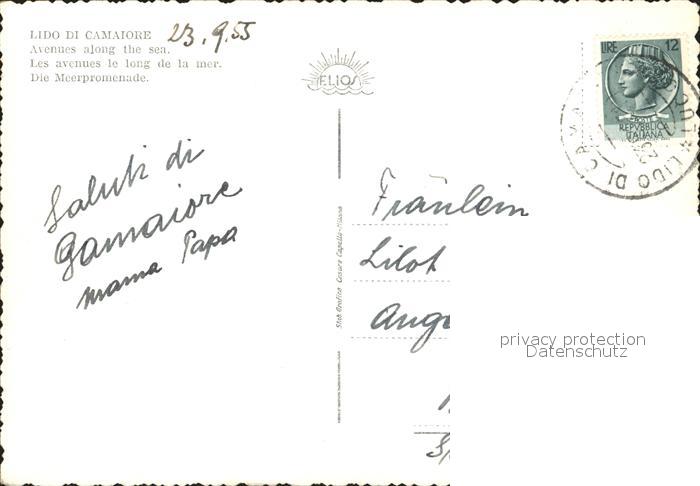 LIDO DI CAMAIORE 23.9.55
Avenues along the sea.
Les avenues le long de la mer.
Die Meerpromenade.
ELIOS
LIRE 12
POSTE
REPVBBLICA
ITALIANA
LIDO DI CAMA
Saluti di
Gamaiore
mama Papa
Stab. Grafico Cesare Capello - Milano
Fräulein
Lilot
Ang
privacy protection
Datenschutz